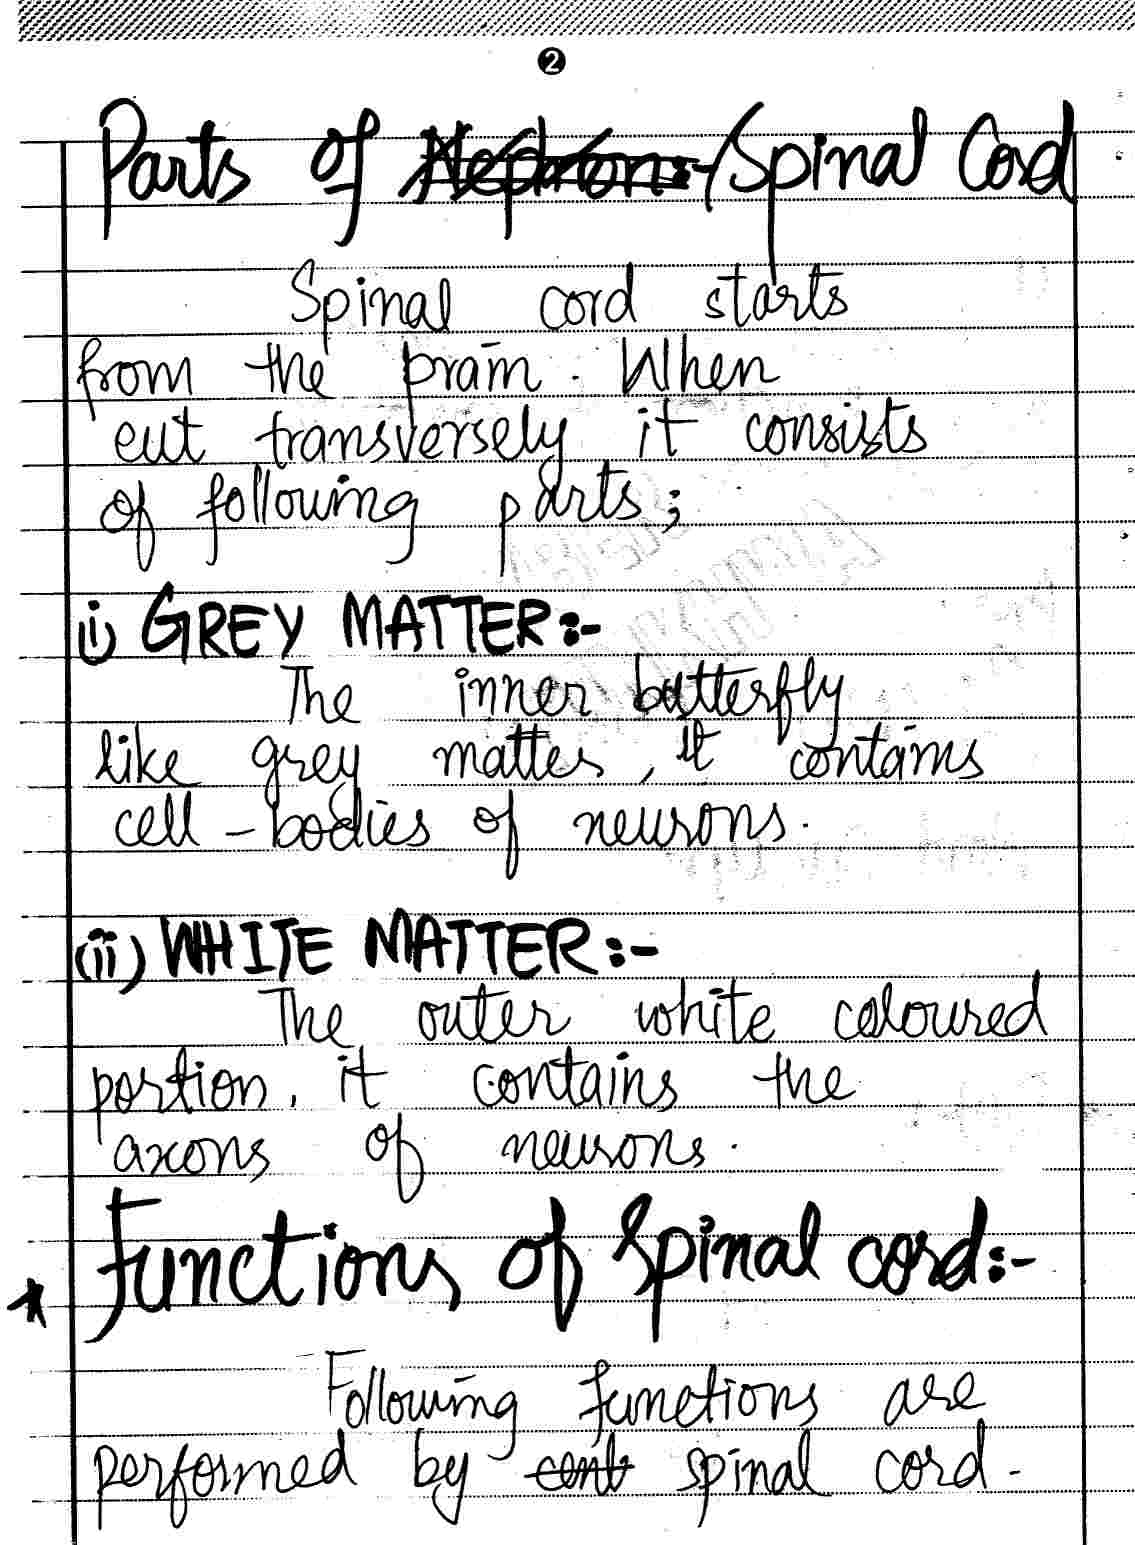 2
Parts of Nephron:- Spinal Cord
Spinal cord starts
from the prain. When
cut transversely it consists
of following parts;
i) GREY MATTER:-
The inner butterfly
like grey matter, it contains
cell-bodies of neurons.
(ii) WHITE MATTER:-
The outer white coloured
portion, it contains the
axons of neurons.
* Functions of Spinal cord:-
Following functions are
performed by cent spinal cord.